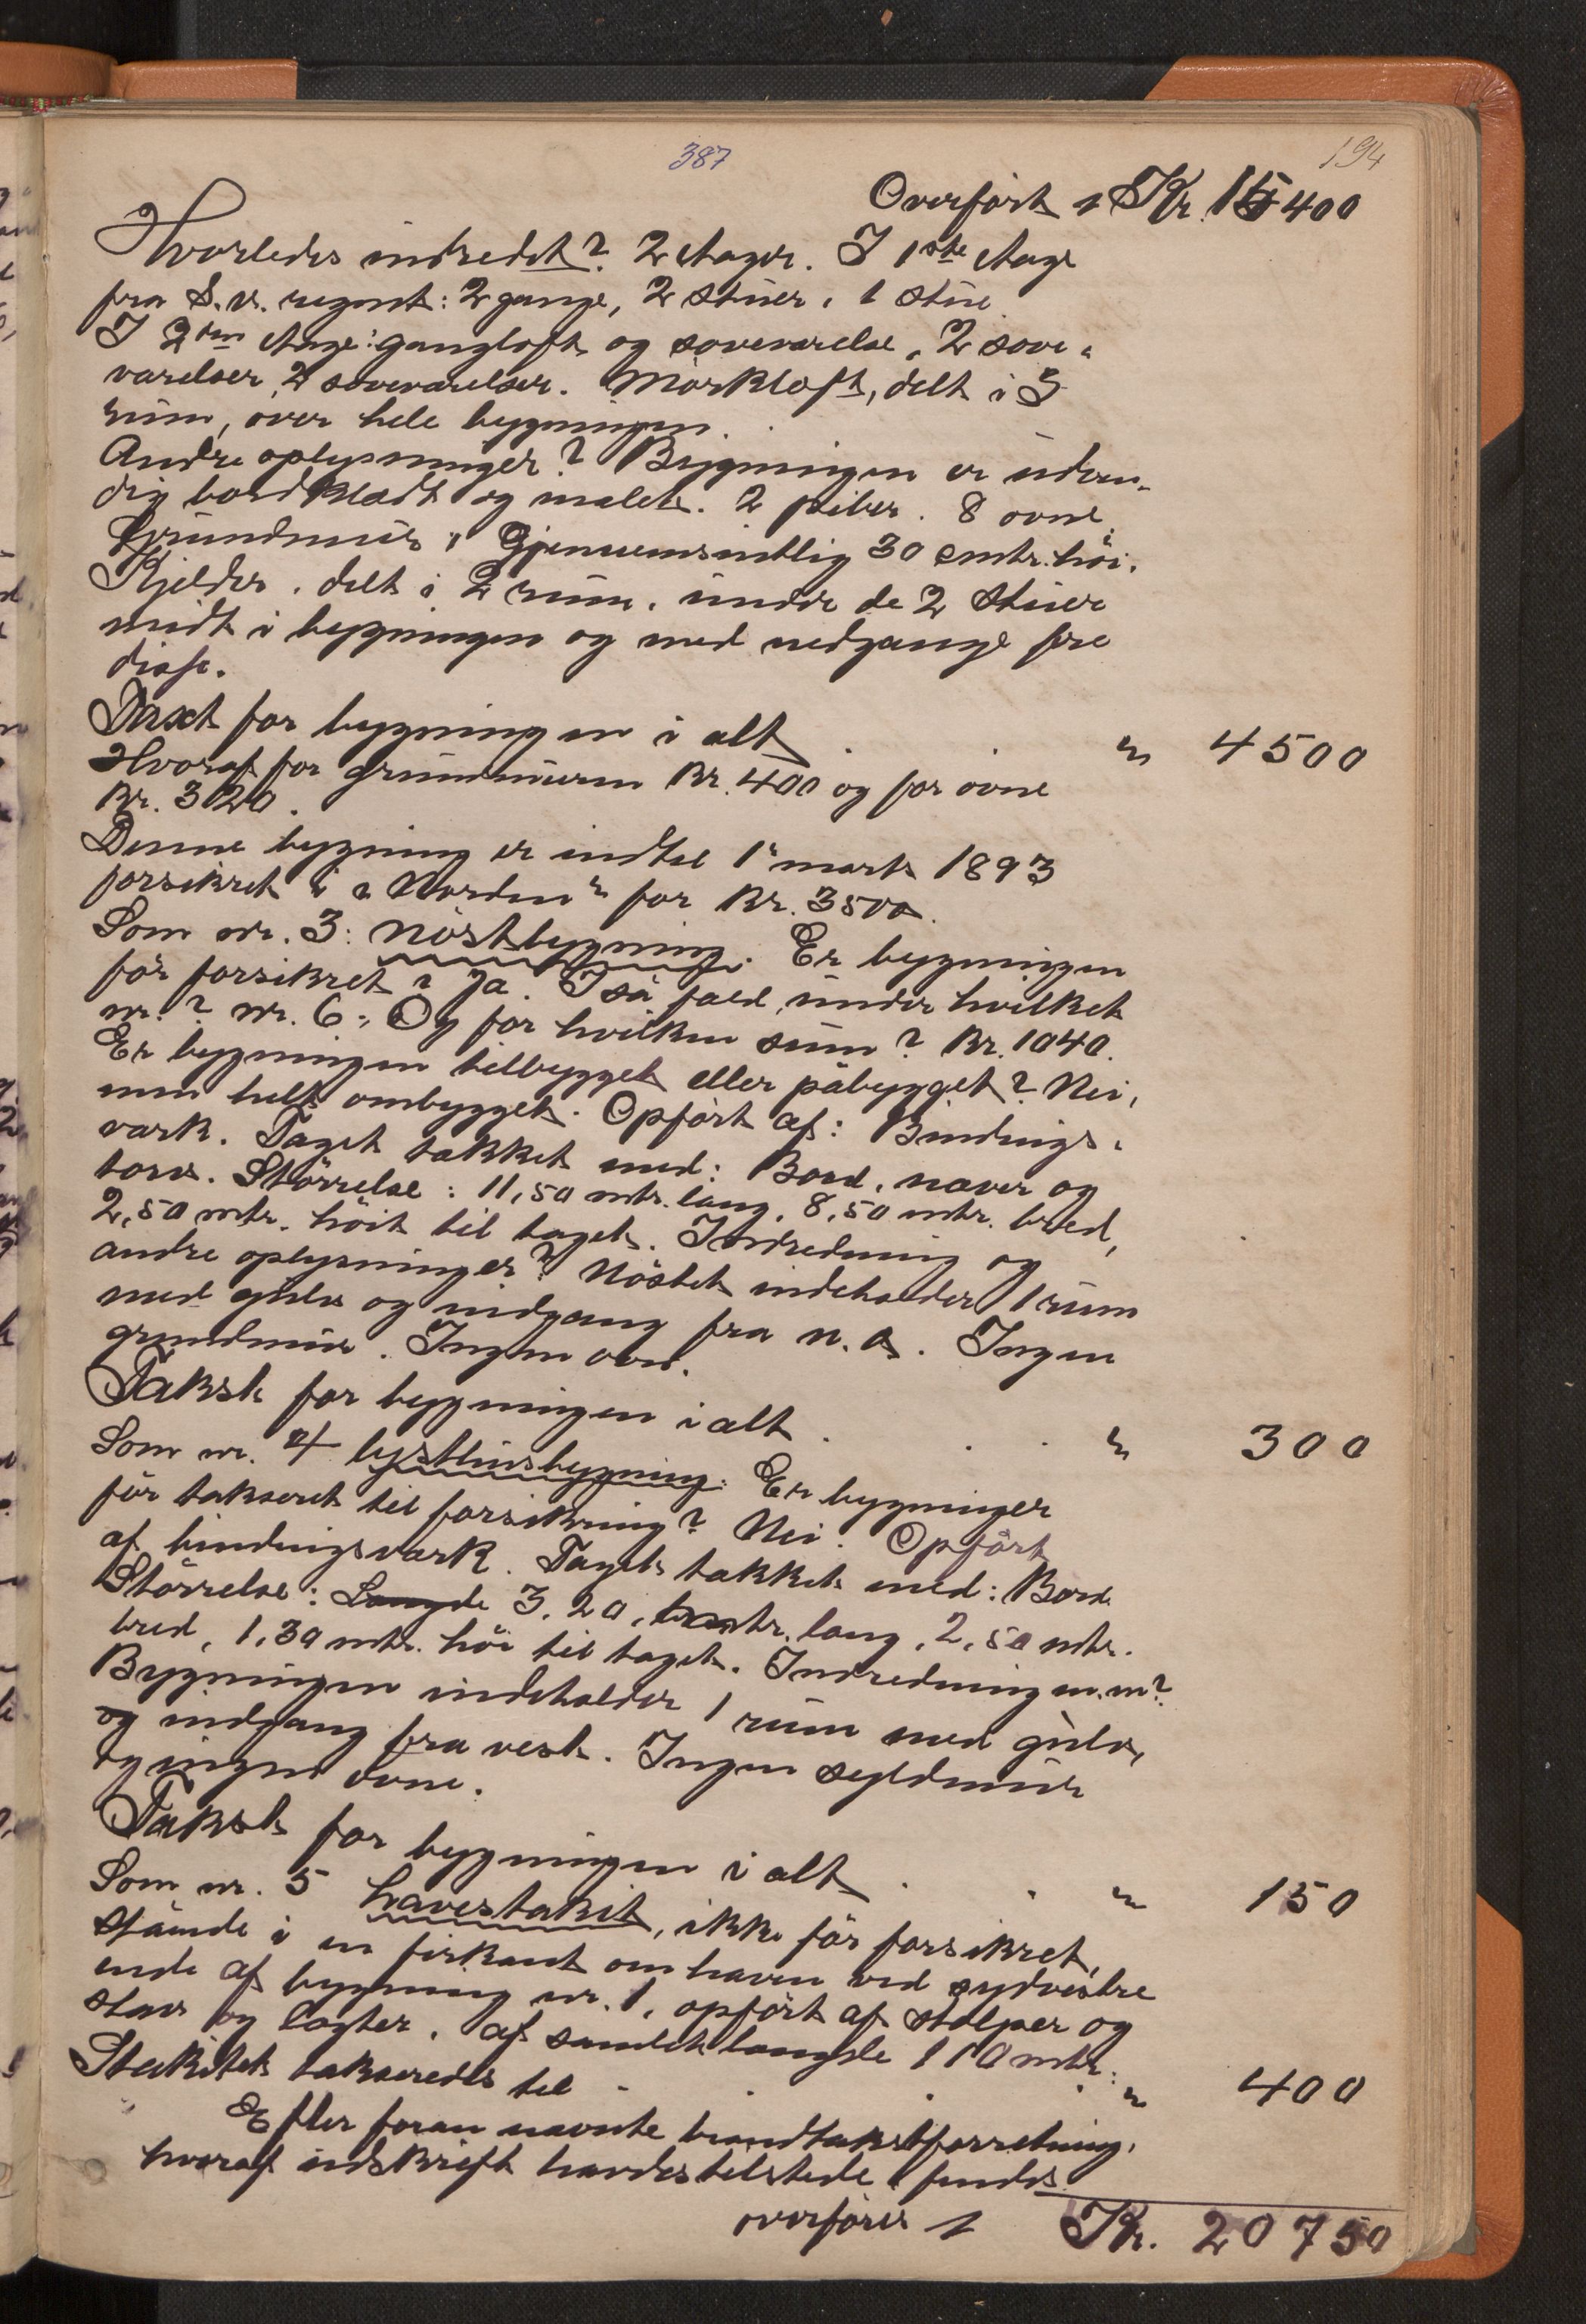 387
194
Overført Kr. 15400
Hvorledes indredet? 2 etager. I 1ste etage
fra S.v. regnet: 2 gange, 2 stuer, 1 stue
I 2den etage: gangloft og soveværelse, 2 sove-
værelser, 2 soveværelser. Mørkloft, delt i 3
rum, over hele bygningen.
Andre oplysninger? Bygningen er udven-
dig bordklædt og malet. 2 piber. 8 ovne.
Grundmur, Gjennemsnitlig 30 cmtr. høi.
Kjelder, delt i 2 rum, under de 2 stuer
midt i bygningen og med nedgange fra
disse.
Taxt for bygningen i alt . . " 4500
Hvoraf for grundmuren Kr. 400 og for ovne
Kr. 320.
Denne bygning er indtil 1' marts 1893
forsikret i "Norden" for Kr. 3500.
Som nr. 3: Nøstbygning. Er bygningen
før forsikret? Ja. I så fald under hvilket
nr.? nr. 6. Og for hvilken sum? Kr. 1040.
Er bygningen tilbygget eller påbygget? Nei,
men helt ombygget. Opført af: Bindings-
værk. Taget tækket med: Bord, næver og
torv. Størrelse: 11,50 mtr. lang, 8,50 mtr. bred,
2,50 mtr. høit til taget. Indredning og
andre oplysninger? Nøstet indeholder 1 rum
med gulv og indgang fra n.ø. Ingen
grundmur. Ingen ovn.
Takst for bygningen i alt . . . " 300
Som nr. 4 lysthusbygning: Er bygningen
før takseret til forsikring? Nei. Opført
af bindingsværk. Taget tækket med: Bord
Størrelse: Længde 3,20, mtr. lang, 2,50 mtr.
bred, 1,30 mtr. høi til taget. Indredning m.m?
Bygningen indeholder 1 rum med gulv,
og indgang fra vest. Ingen syldmur
og ingen ovne.
Takst for bygningen i alt . . " 150
Som nr. 5 havestakit, ikke før forsikret,
stående i en firkant om haven ved sydvestre
ende af bygning nr. 1, opført af stolper og
stav og lægter, af samlet længde 110 mtr.
Stakitet takseredes til . . . " 400
Efter foran nævnte brandtakstforretning,
hvoraf udskrift havdes tilstede, findes
overføres Kr. 20750